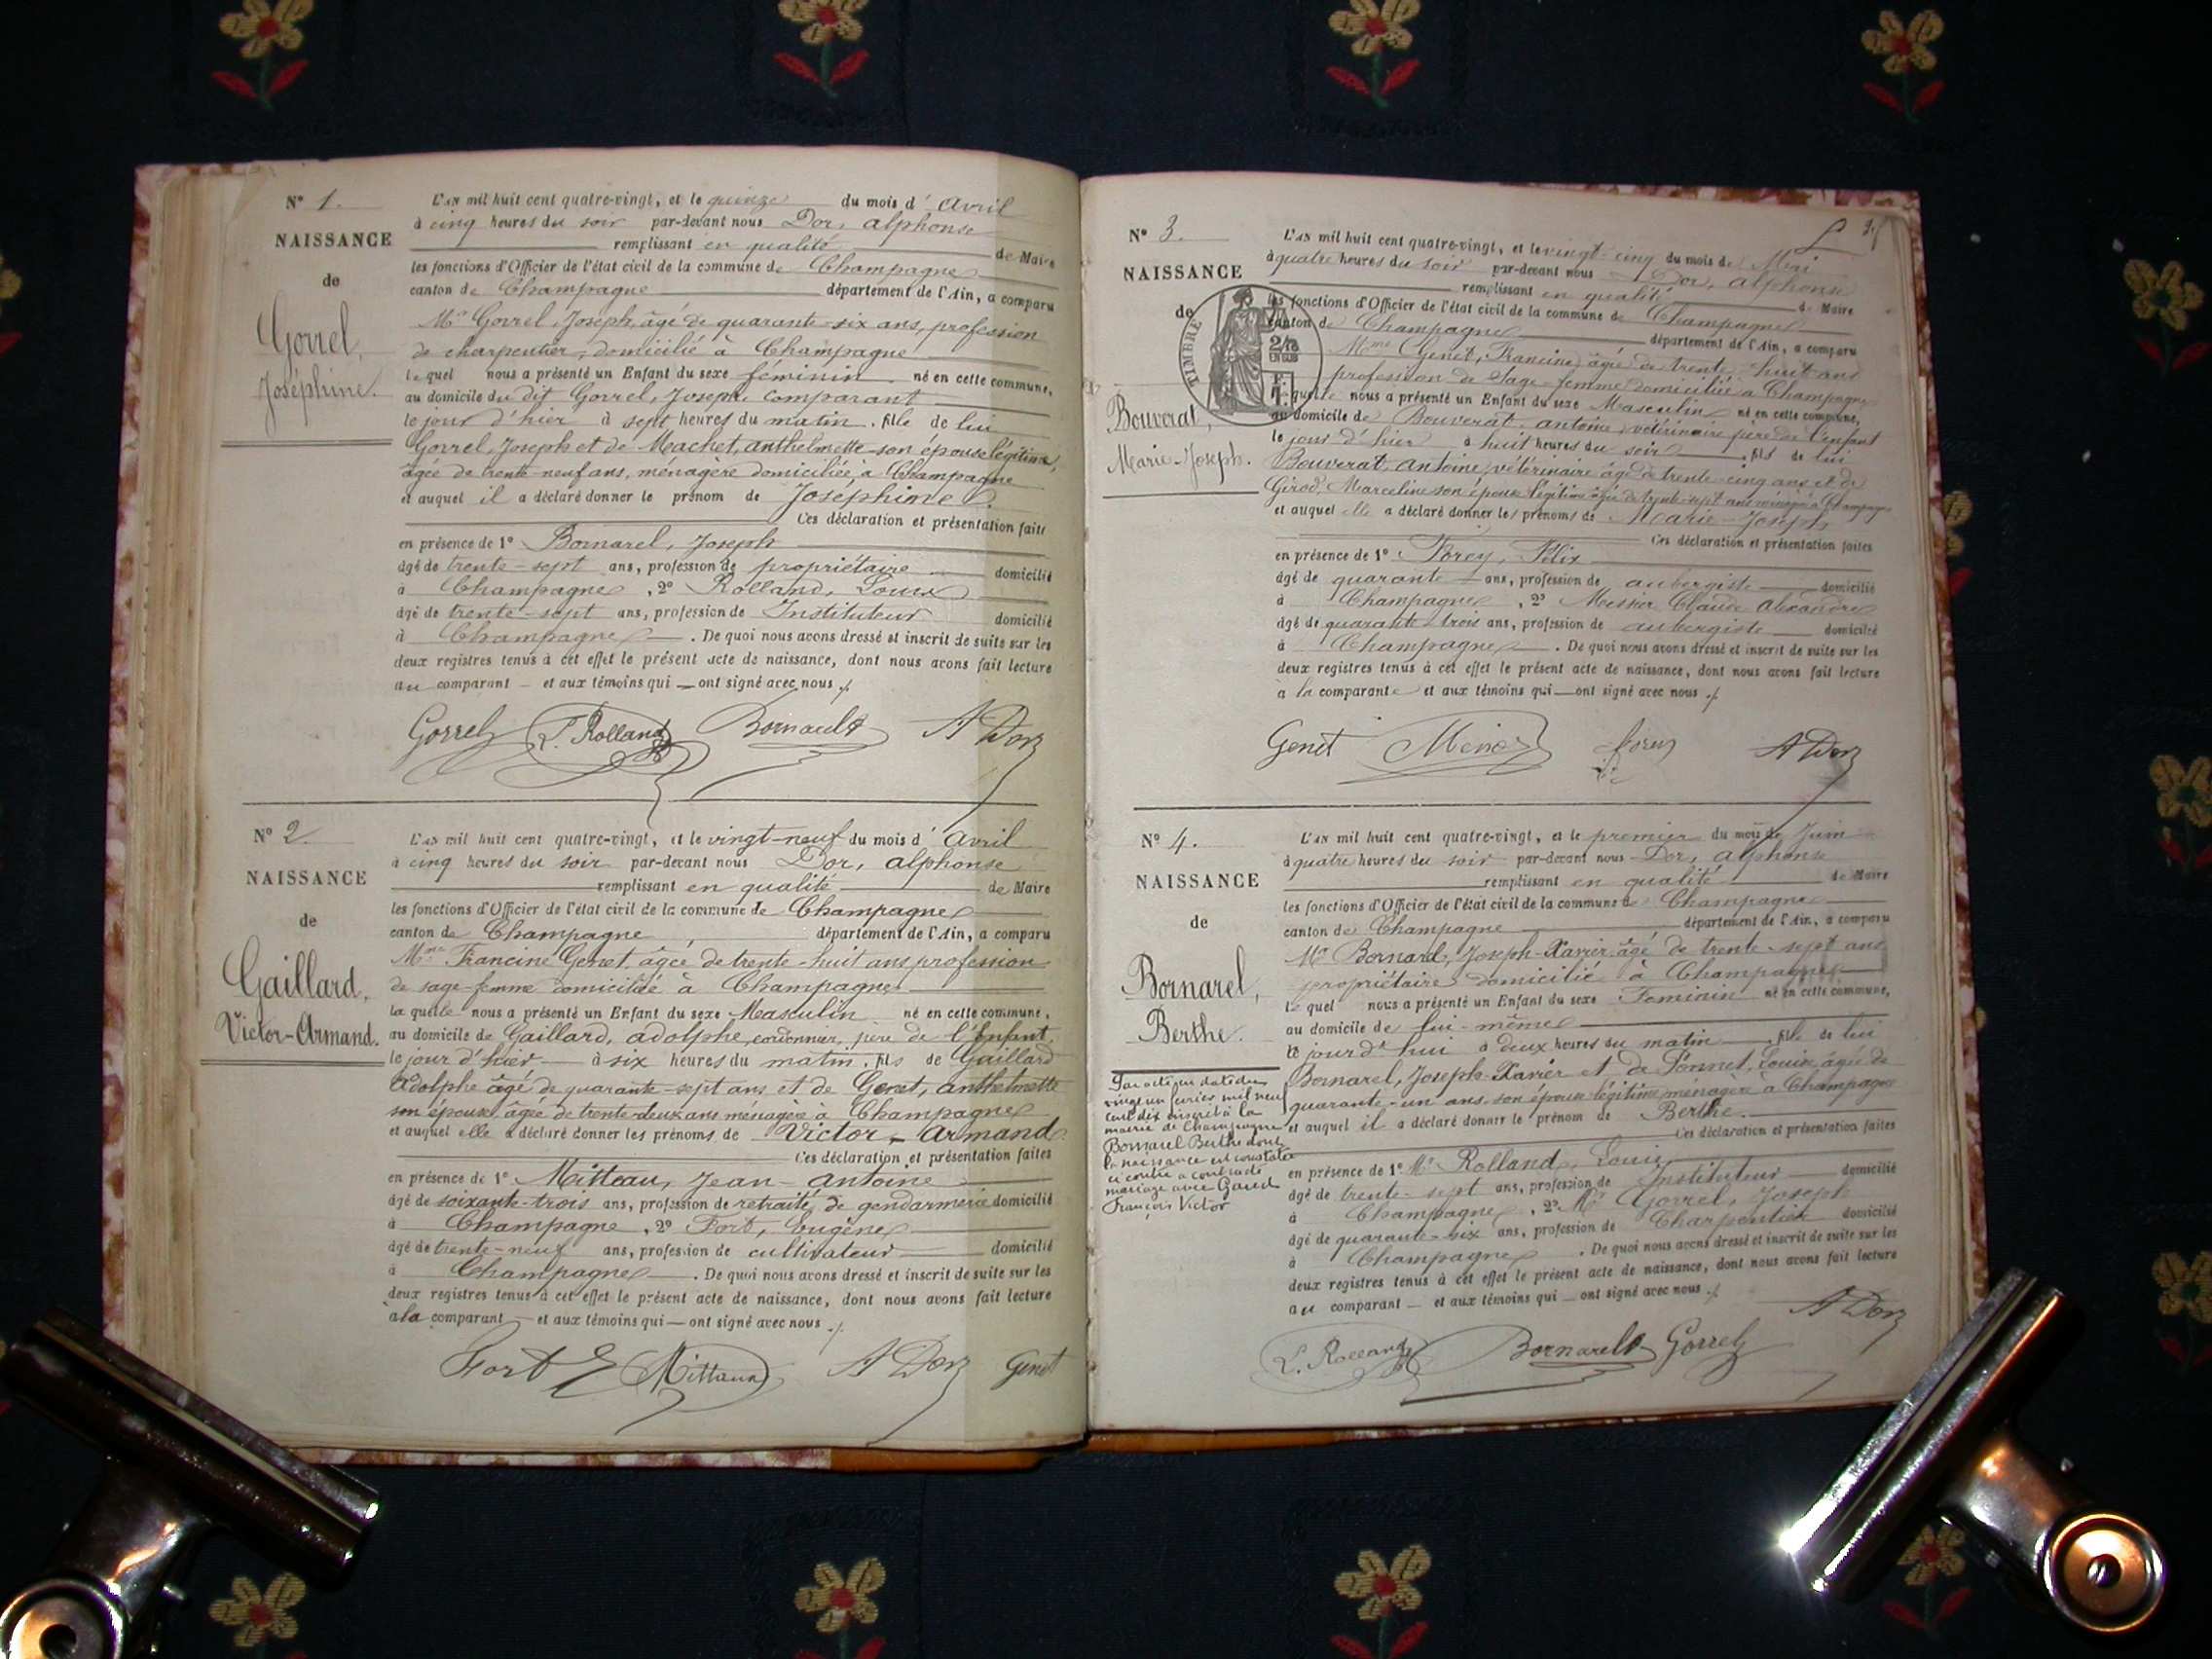 N° 1.
NAISSANCE
de
Gorrel,
Joséphine.
L'AN mil huit cent quatre-vingt, et le quinze du mois d'Avril
à cinq heures du soir par-devant nous Dor, Alphonse
remplissant en qualité de Maire
les fonctions d'Officier de l'état civil de la commune de Champagne
canton de Champagne département de l'Ain, a comparu
Mr Gorrel, Joseph, âgé de quarante-six ans, profession
de charpentier, domicilié à Champagne
lequel nous a présenté un Enfant du sexe féminin né en cette commune,
au domicile du dit Gorrel, Joseph, comparant
le jour d'hier à sept heures du matin, fille de lui
Gorrel, Joseph et de Machet, Anthelmette son épouse légitime,
âgée de trente-neuf ans, ménagère domiciliée, à Champagne
et auquel il a déclaré donner le prénom de Joséphine.
Ces déclaration et présentation faites
en présence de 1° Bornarel, Joseph
âgé de trente-sept ans, profession de propriétaire domicilié
à Champagne, 2° Rolland, Louis
âgé de trente-sept ans, profession de Instituteur domicilié
à Champagne. De quoi nous avons dressé et inscrit de suite sur les
deux registres tenus à cet effet le présent acte de naissance, dont nous avons fait lecture
au comparant et aux témoins qui ont signé avec nous ./.
Gorrel L. Rolland Bornarel A Dor
N° 2.
NAISSANCE
de
Gaillard,
Victor-Armand.
L'AN mil huit cent quatre-vingt, et le vingt-neuf du mois d'Avril
à cinq heures du soir par-devant nous Dor, Alphonse
remplissant en qualité de Maire
les fonctions d'Officier de l'état civil de la commune de Champagne
canton de Champagne département de l'Ain, a comparu
Mme Francine Genet, âgée de trente-huit ans profession
de sage-femme domiciliée à Champagne
laquelle nous a présenté un Enfant du sexe Masculin né en cette commune,
au domicile de Gaillard, Adolphe, cordonnier, père de l'Enfant,
le jour d'hier à six heures du matin, fils de Gaillard
Adolphe âgé de quarante-sept ans et de Genet, Anthelmette
son épouse âgée de trente-deux ans ménagère à Champagne
et auquel elle a déclaré donner les prénoms de Victor-Armand
Ces déclaration et présentation faites
en présence de 1° Mitteau, Jean-Antoine
âgé de soixante-trois ans, profession de retraité de gendarmerie domicilié
à Champagne, 2° Fort, Eugène
âgé de trente-neuf ans, profession de cultivateur domicilié
à Champagne. De quoi nous avons dressé et inscrit de suite sur les
deux registres tenus à cet effet le présent acte de naissance, dont nous avons fait lecture
à la comparant et aux témoins qui ont signé avec nous ./.
Fort E Mitteau A Dor Genet
N° 3.
NAISSANCE
de
TIMBRE
Bouverat,
Marie-Joseph.
L'AN mil huit cent quatre-vingt, et le vingt-cinq du mois de Mai
à quatre heures du soir par-devant nous Dor, Alphonse
remplissant en qualité de Maire
les fonctions d'Officier de l'état civil de la commune de Champagne
canton de Champagne département de l'Ain, a comparu
Mme Genet, Francine, âgée de trente-huit ans
profession de Sage-femme domiciliée à Champagne
laquelle nous a présenté un Enfant du sexe Masculin né en cette commune,
au domicile de Bouverat Antoine, vétérinaire père de l'enfant
le jour d'hier à huit heures du soir, fils de lui
Bouverat, Antoine, vétérinaire âgé de trente-cinq ans et de
Girod, Marceline son épouse légitime âgée de trente-sept ans ménagère à Champagne
et auquel elle a déclaré donner les prénoms de Marie-Joseph
Ces déclaration et présentation faites
en présence de 1° Félix
âgé de quarante ans, profession de aubergiste domicilié
à Champagne, 2° Claude Alexandre
âgé de quarante-trois ans, profession de aubergiste domicilié
à Champagne. De quoi nous avons dressé et inscrit de suite sur les
deux registres tenus à cet effet le présent acte de naissance, dont nous avons fait lecture
à la comparante et aux témoins qui ont signé avec nous ./.
Genet A Dor
N° 4.
NAISSANCE
de
Bornarel,
Berthe.
Par acte en date du
vingt un février mil neuf
cent dix inscrit à la
mairie de Champagne
Bornarel Berthe dont
la naissance est constatée
ci contre a contracté
mariage avec
François Victor
L'AN mil huit cent quatre-vingt, et le premier du mois de Juin
à quatre heures du soir par-devant nous Dor, Alphonse
remplissant en qualité de Maire
les fonctions d'Officier de l'état civil de la commune de Champagne
canton de Champagne département de l'Ain, a comparu
Mr Bornarel, Joseph-Xavier âgé de trente-sept ans
propriétaire domicilié à Champagne
lequel nous a présenté un Enfant du sexe Féminin né en cette commune,
au domicile de lui-même
le jour d'hui à deux heures du matin, fille de lui
Bornarel, Joseph-Xavier et de Ponnet, Louise âgée de
quarante-un ans son épouse légitime ménagère à Champagne
et auquel il a déclaré donner le prénom de Berthe.
Ces déclaration et présentation faites
en présence de 1° Mr Rolland, Louis
âgé de trente-sept ans, profession de Instituteur domicilié
à Champagne, 2° Mr Gorrel, Joseph
âgé de quarante-six ans, profession de Charpentier domicilié
à Champagne. De quoi nous avons dressé et inscrit de suite sur les
deux registres tenus à cet effet le présent acte de naissance, dont nous avons fait lecture
au comparant et aux témoins qui ont signé avec nous ./.
A Dor
L. Rolland Bornarel Gorrel